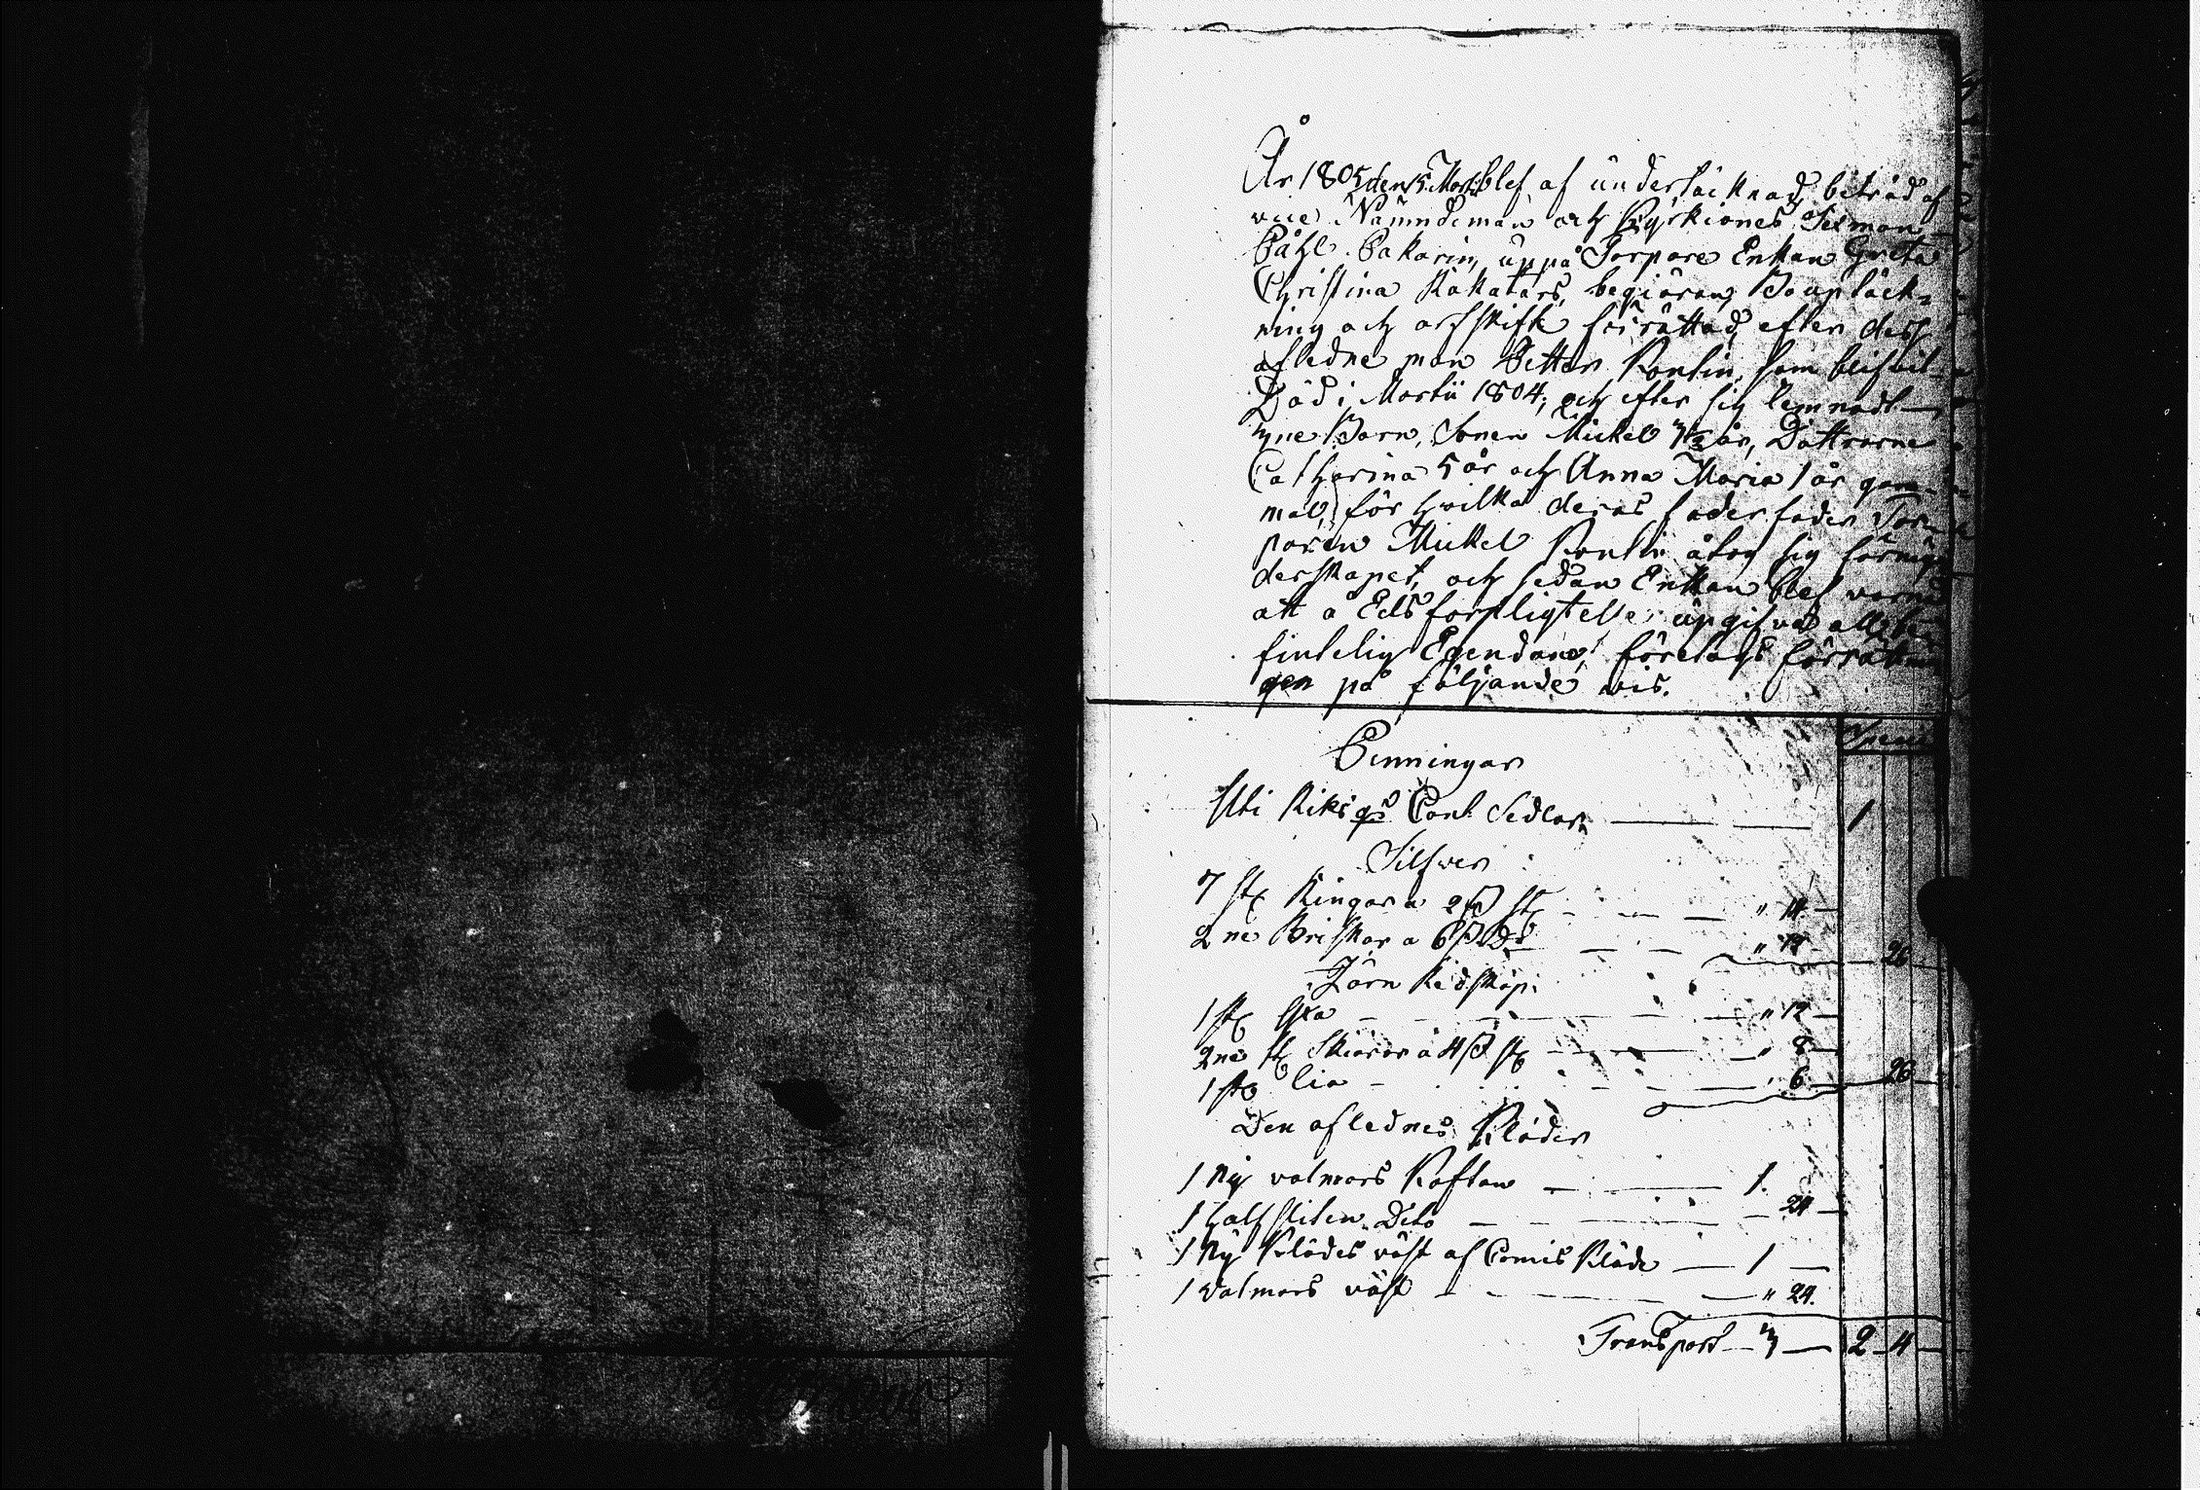 År 1805 den 15 Martii blef af undertäcknad, biträd af
vice Nämndeman och Kyrkiones Sexman
Påhl Pakarin, uppå Torpare Enkan Greta
Christina Kakatars, begiäran, Bouptäck-
ning och arfskifte förrättad, efter dess
afledne man Petter Rontin, som blifvit
Död i Martii 1804, och efter sig lemnadt
3ne Barn, Sonen Mickel 7½ år, Dottrarne
Catharina 5 år och Anna Maria 1 år gam-
mal, för hvilka deras faderfader Tor-
paren Mickel Rontin åtog sig förmyn
derskapet, och sedan Enkan blef varnad
att å Edsförpligtelse upgifva all be-
fintelig Egendom, företogs förrättnin
gen på följande vis.
Penningar
uti Riksgs Cont. Sedlar 1
Silfwer
7 st Ringar a 2 s st " 14
2ne Briskor a 6 s Do " 12 26
Järn Redskap
1 st Yxa " 12
2ne st Skiäror a 4 s st " 8
1 st lia " 6 26
Den aflednes Kläder
1 Ny valmars Kaftan 1
1 half sliten Dito 24
1 Ny Klädes väst af Comis Kläde 1
1 valmars väst " 24
Transport 3 2 4